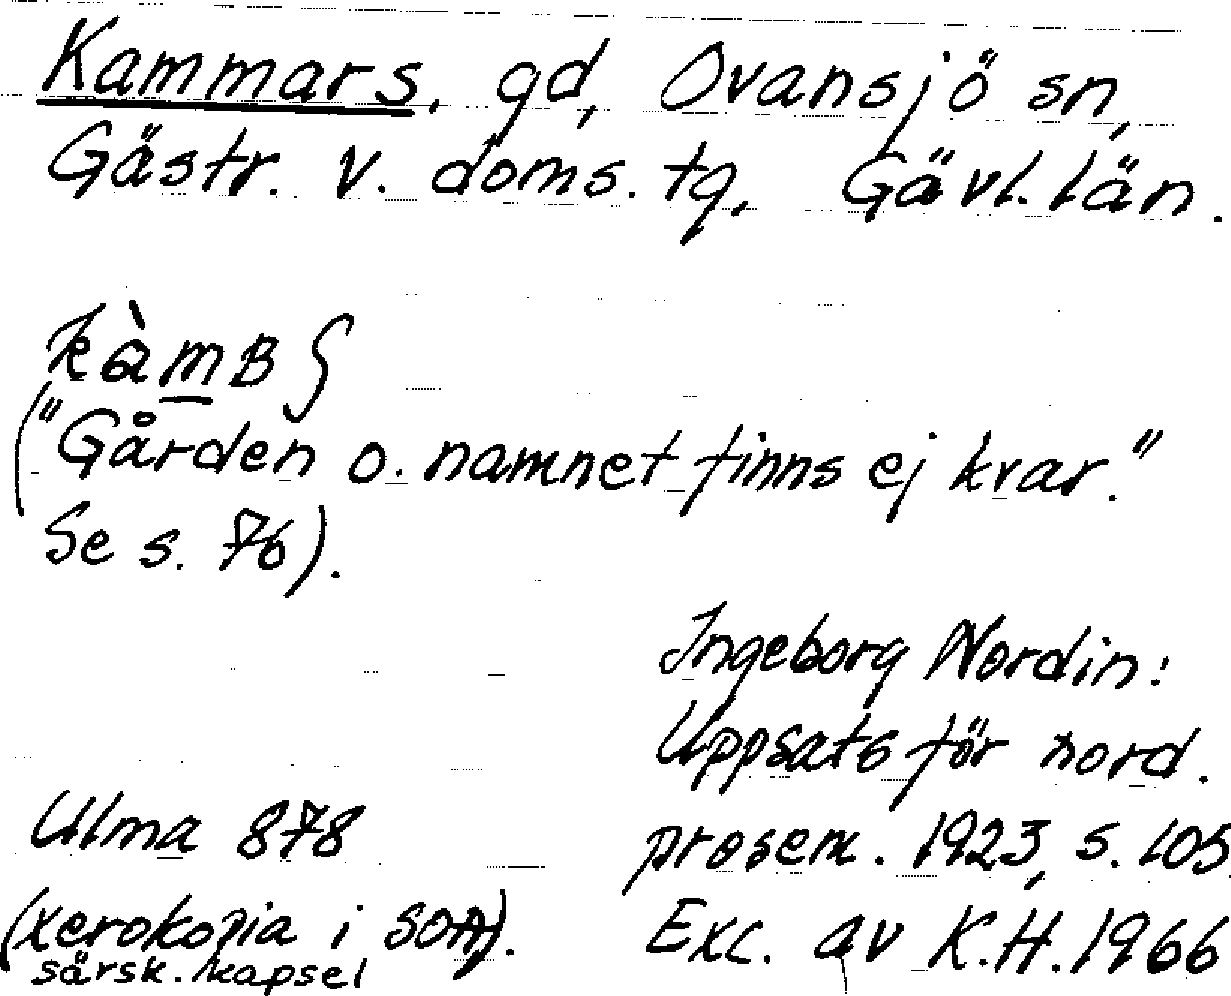 Kammars, gd, Ovansjö sn,
Gästr. v. doms. tg, Gävl. län.
kàmBʃ
("Gården o. namnet finns ej kvar."
Se s. 76).
Ingeborg Nordin:
Uppsats för nord.
prosem. 1923, s. 105
Ulma 878
(xerokopia i SOA).
särsk. kapsel
Exc. av K.H. 1966